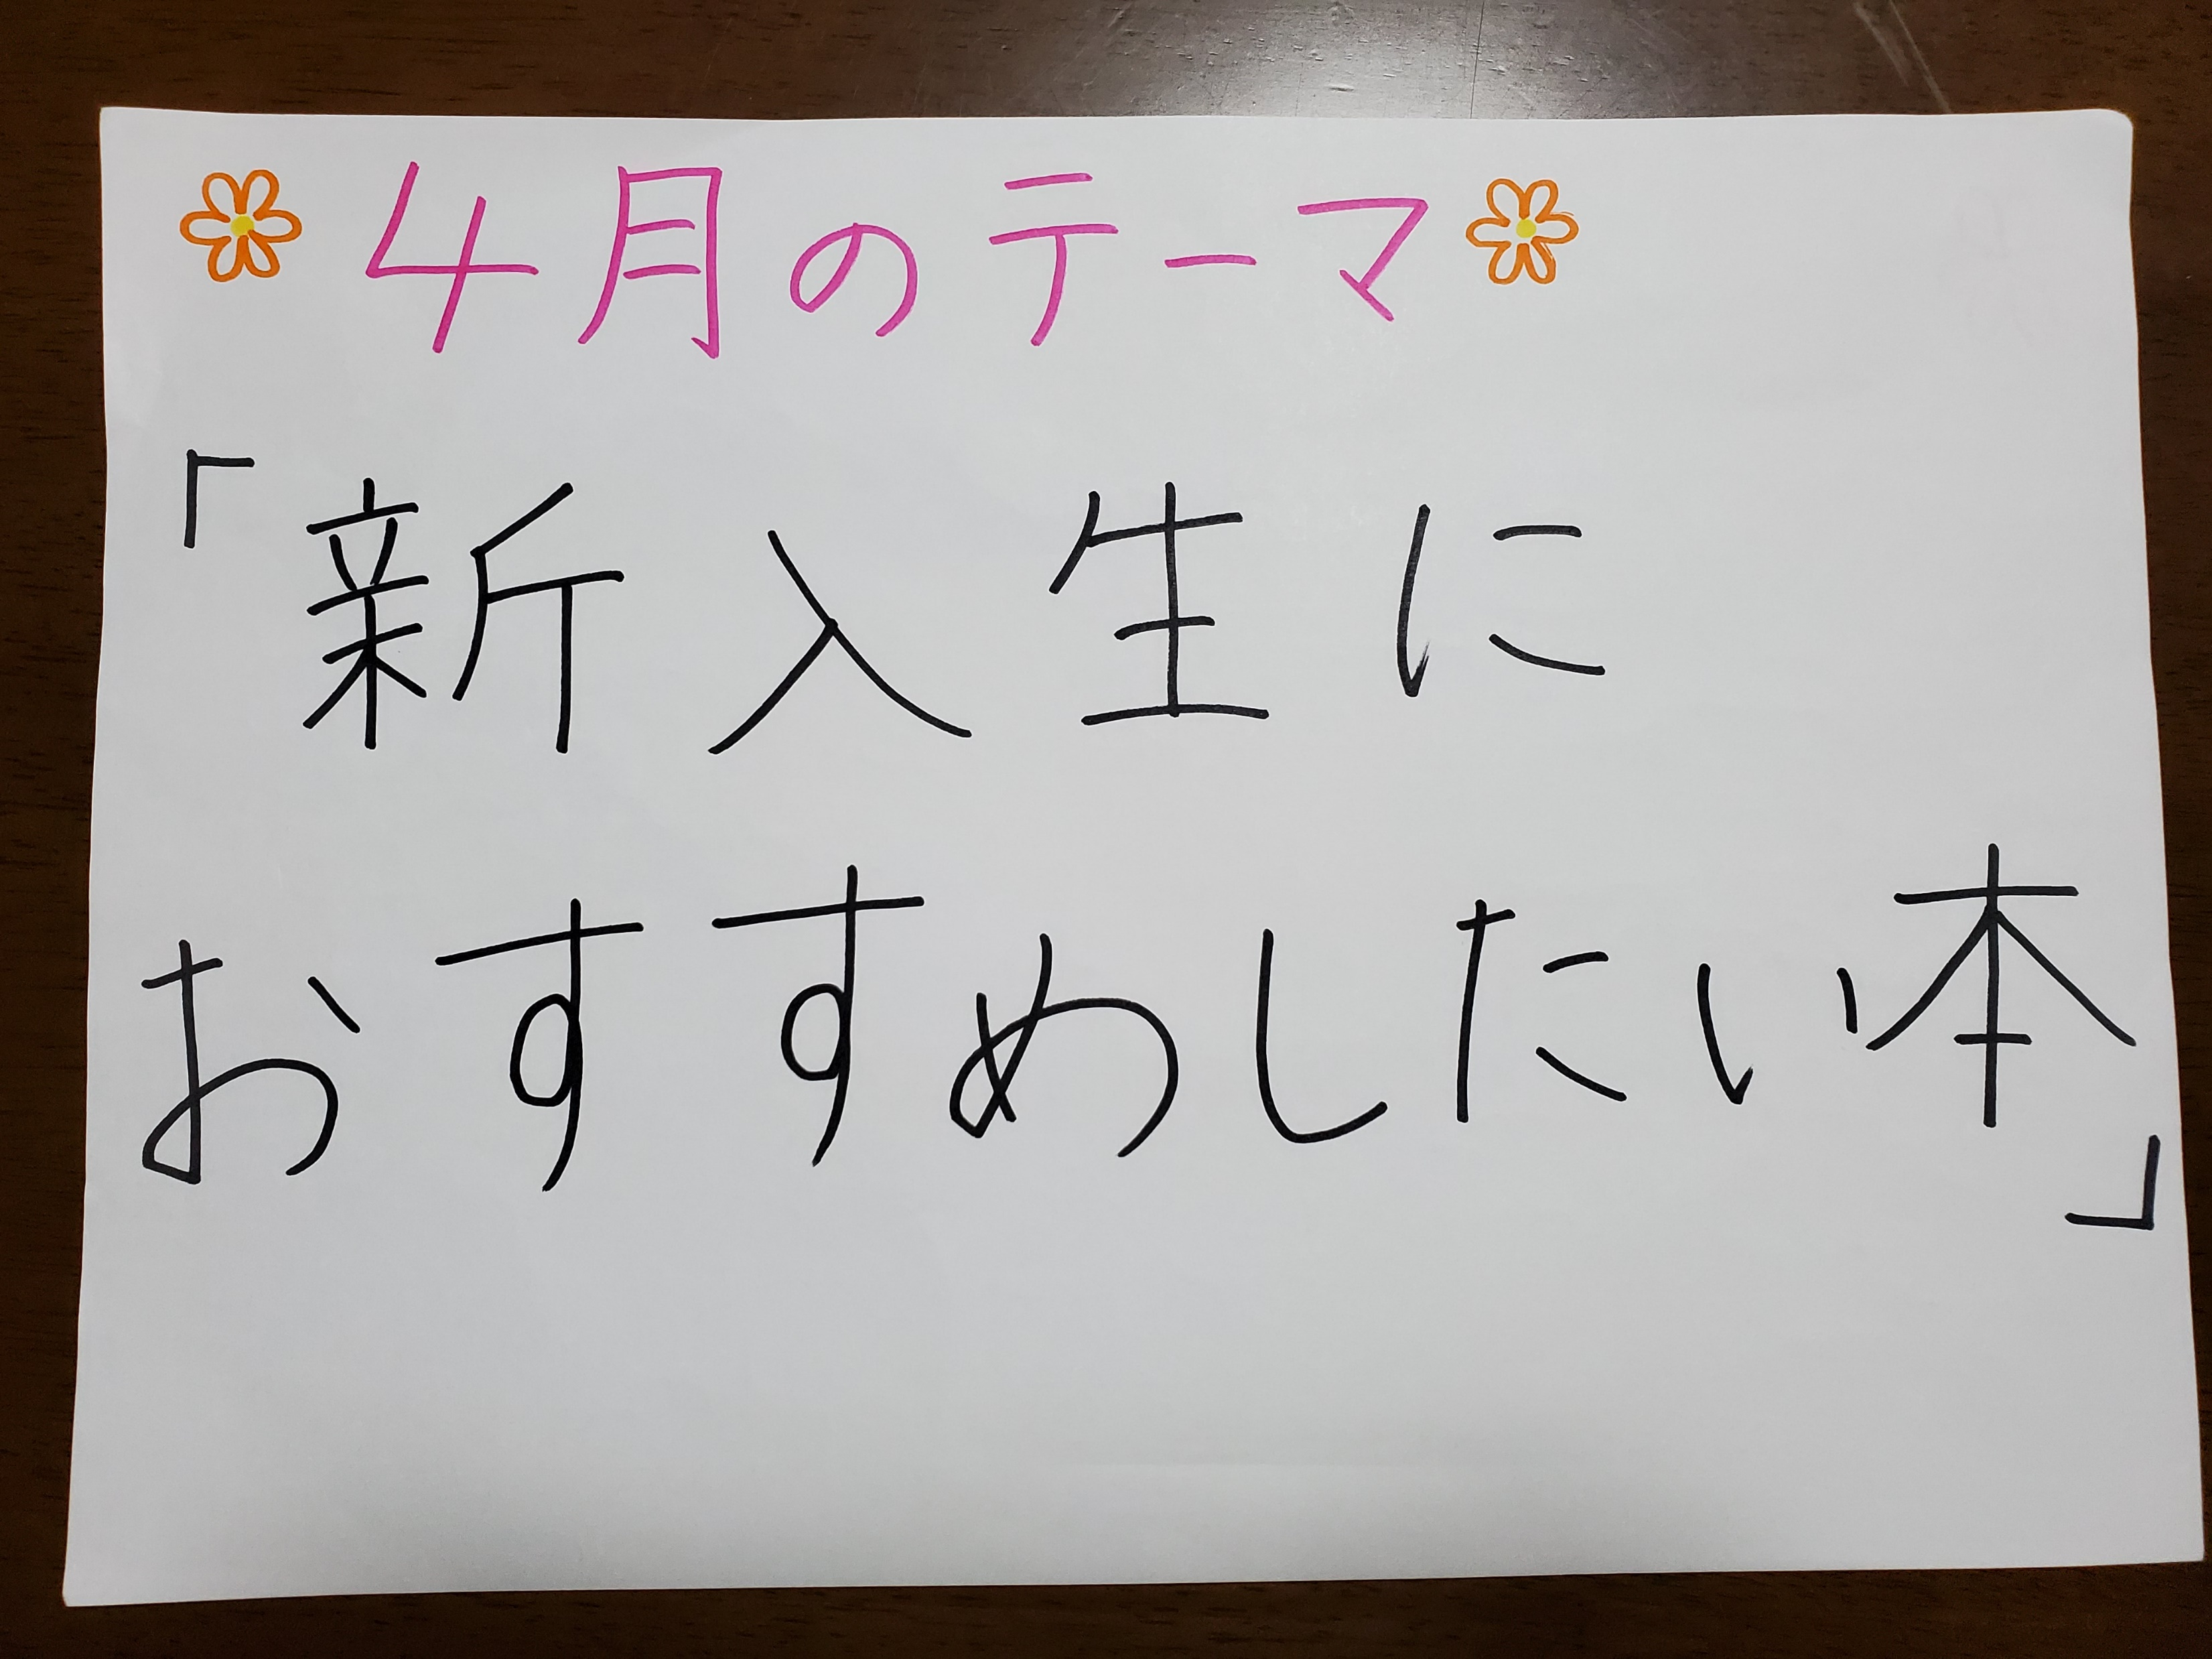 4月のテーマ
「新入生に
おすすめしたい本」